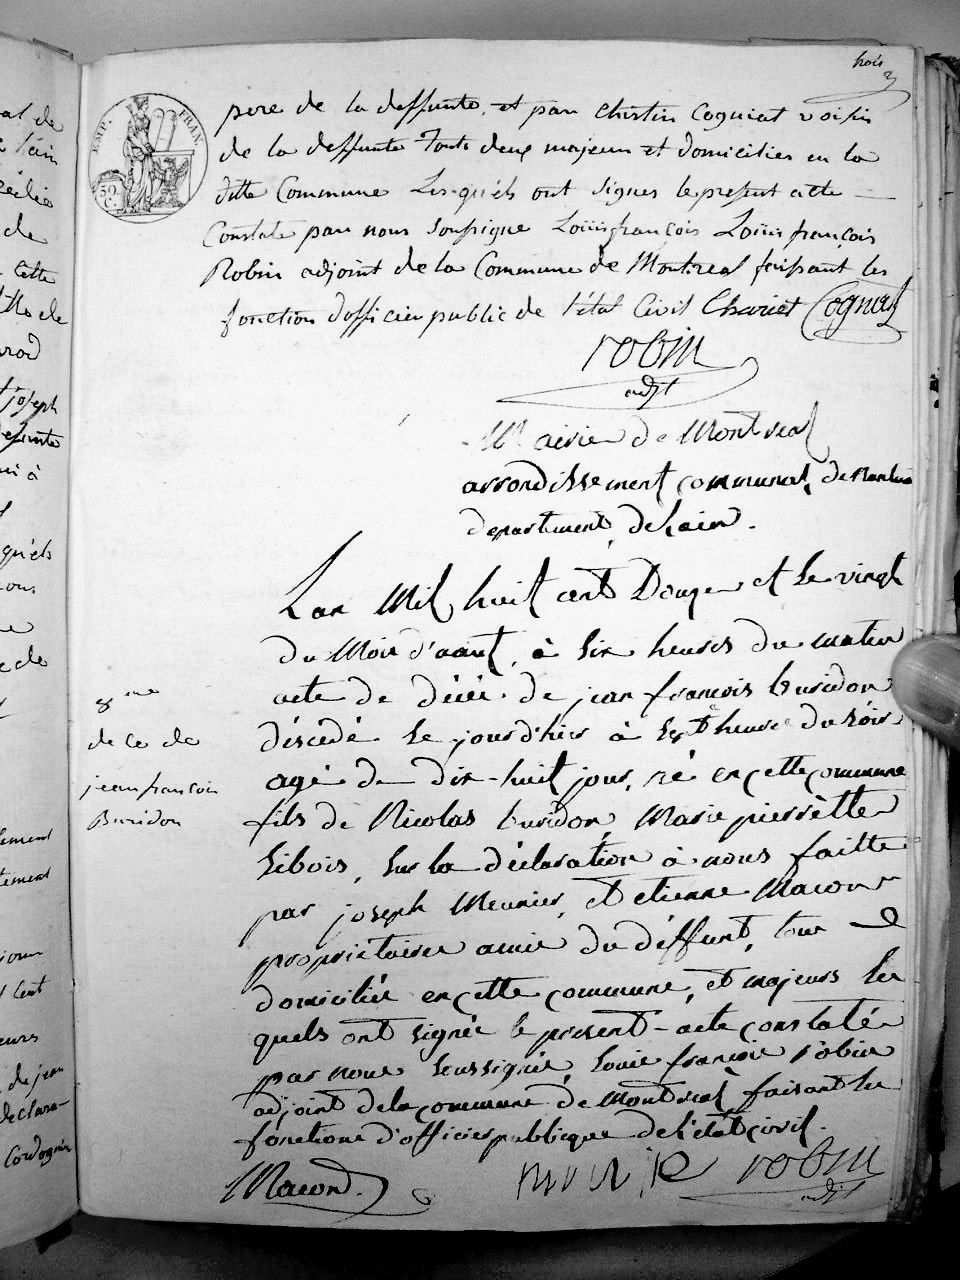 trois
3
EMP. FRAN.
50 C.
pere de la deffunte, et par Christin Cogniat voisin
de la deffunte Touts deux majeurs et domicilies en la
ditte Commune Lesquéls ont signes le present acte
Constate par nous Soussigne Loüis françois Loüis françois
Robin adjoint de la Commune de Montreal faissant les
fonction d'officier public de l'état Civil Chariet Cogniat
robin
adjt
Mairie de Montreal
arrondissement communal, de Nantua
departement de Lain.
Lan Mil huit cent Douze et le vingt
du Mois d'aout, à Six heures du matin
acte de décée de jean françois buridon
décedé le jourd'hier à Sept heures du Soir
agé de dix-huit jour, né en cette commune
fils de Nicolas buridon, Marie pierrètte
Sibois, Sur la déclaration à nous faitte
par joseph Meunier, et etienne Macon
proprietaires amie du déffunt, tous
domiciliée en cette commune, et majeurs les
quels ont signée le present acte constaté
par nous Soussignée, Louis françois robin
adjoint de la commune de Montreal faisant les
fonctions d'officier publique de l'état civil.
Macon
munier
robin
adjt
8me
de ce de
jean françois
Buridon